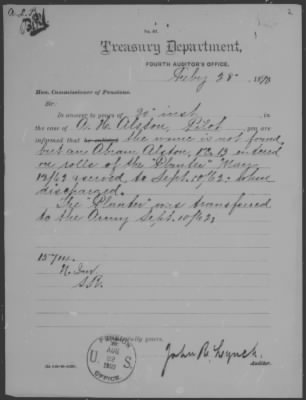 Treasury Department,
FOURTH AUDITOR'S OFFICE,
Feby 28" 1893
Hon. Commissioner of Pensions.
Sir:
In answer to yours of 20" inst, in
the case of A. N. Alston, Pilot you are
informed that the name is not found,
but an Abram Alston, is entered
on rolls of the "Planter" May
13/62 & served to Sept. 10/62 when
discharged.
The "Planter" was transferred
to the Army Sept. 10/62.
PENSION
U S
AUG
OFFICE
John R. Lynch
Auditor.